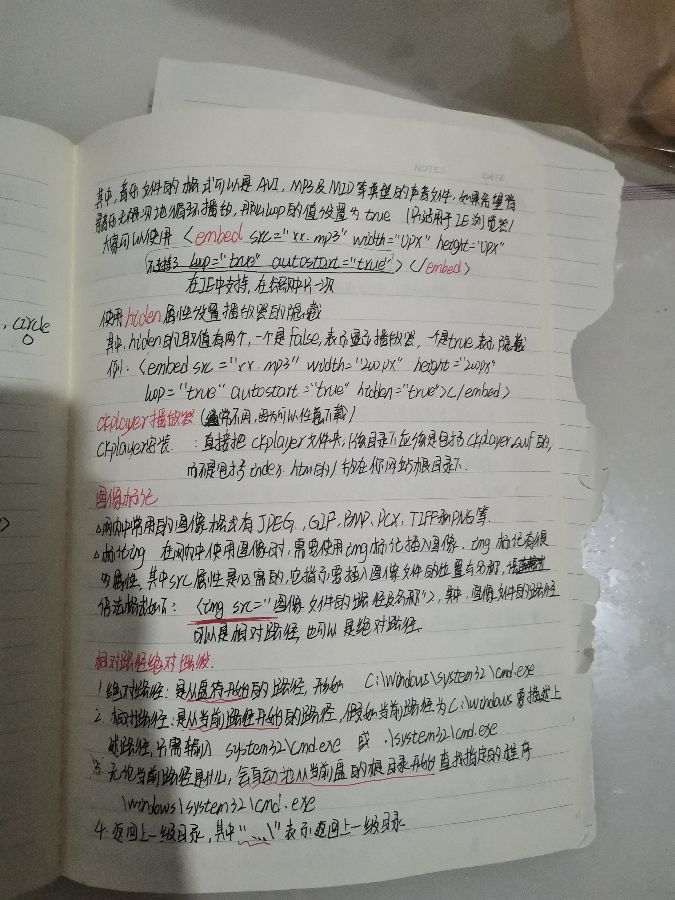 NOTES DATE
其中,音乐文件的格式可以是 AVI, MP3及MID等类型的声音文件,如果希望背
景音乐无限次地循环播放,可以loop的值设置为 true (只适用于IE浏览器)
大家可以使用 <embed src="xx.mp3" width="0px" height="0px"
loop="true" autostart="true"></embed>
在IE中支持,在
, circle
使用hidden属性设置播放器的隐藏
其中,hidden的取值有两个,一个是false,表示显示播放器,一个是true,表示隐藏
例: <embed src="xx.mp3" width="200px" height="200px"
loop="true" autostart="true" hidden="true"></embed>
ckplayer播放器 (通常不用,因为可以任意下载)
ckplayer安装: 直接把ckplayer文件夹,(该目录下应该是包括ckplayer.swf的,
而不是包括index.htm的)放在你网站根目录下.
图像标记
网页中常用的图像格式有JPEG、GIF、BMP、PCX、TIFF和PNG等.
标记img 在网页中使用图像时,需要使用img标记插入图像. img标记有很
多属性,其中src属性是必需的,它指示要插入图像文件的位置与名称,
语法格式如下: <img src="图像文件的路径及名称">,其中,图像文件的路径
可以是相对路径,也可以是绝对路径.
相对路径绝对路径.
1.绝对路径:是从盘符开始的路径,形如 C:\windows\system32\cmd.exe
2.相对路径:是从当前路径开始的路径,假如当前路径为C:\windows要描述上
述路径,只需输入 system32\cmd.exe 或 .\system32\cmd.exe
3.无论当前路径是什么,会自动地从当前盘的根目录开始查找指定的程序
\windows\system32\cmd.exe
4.返回上一级目录,其中"...\"表示返回上一级目录